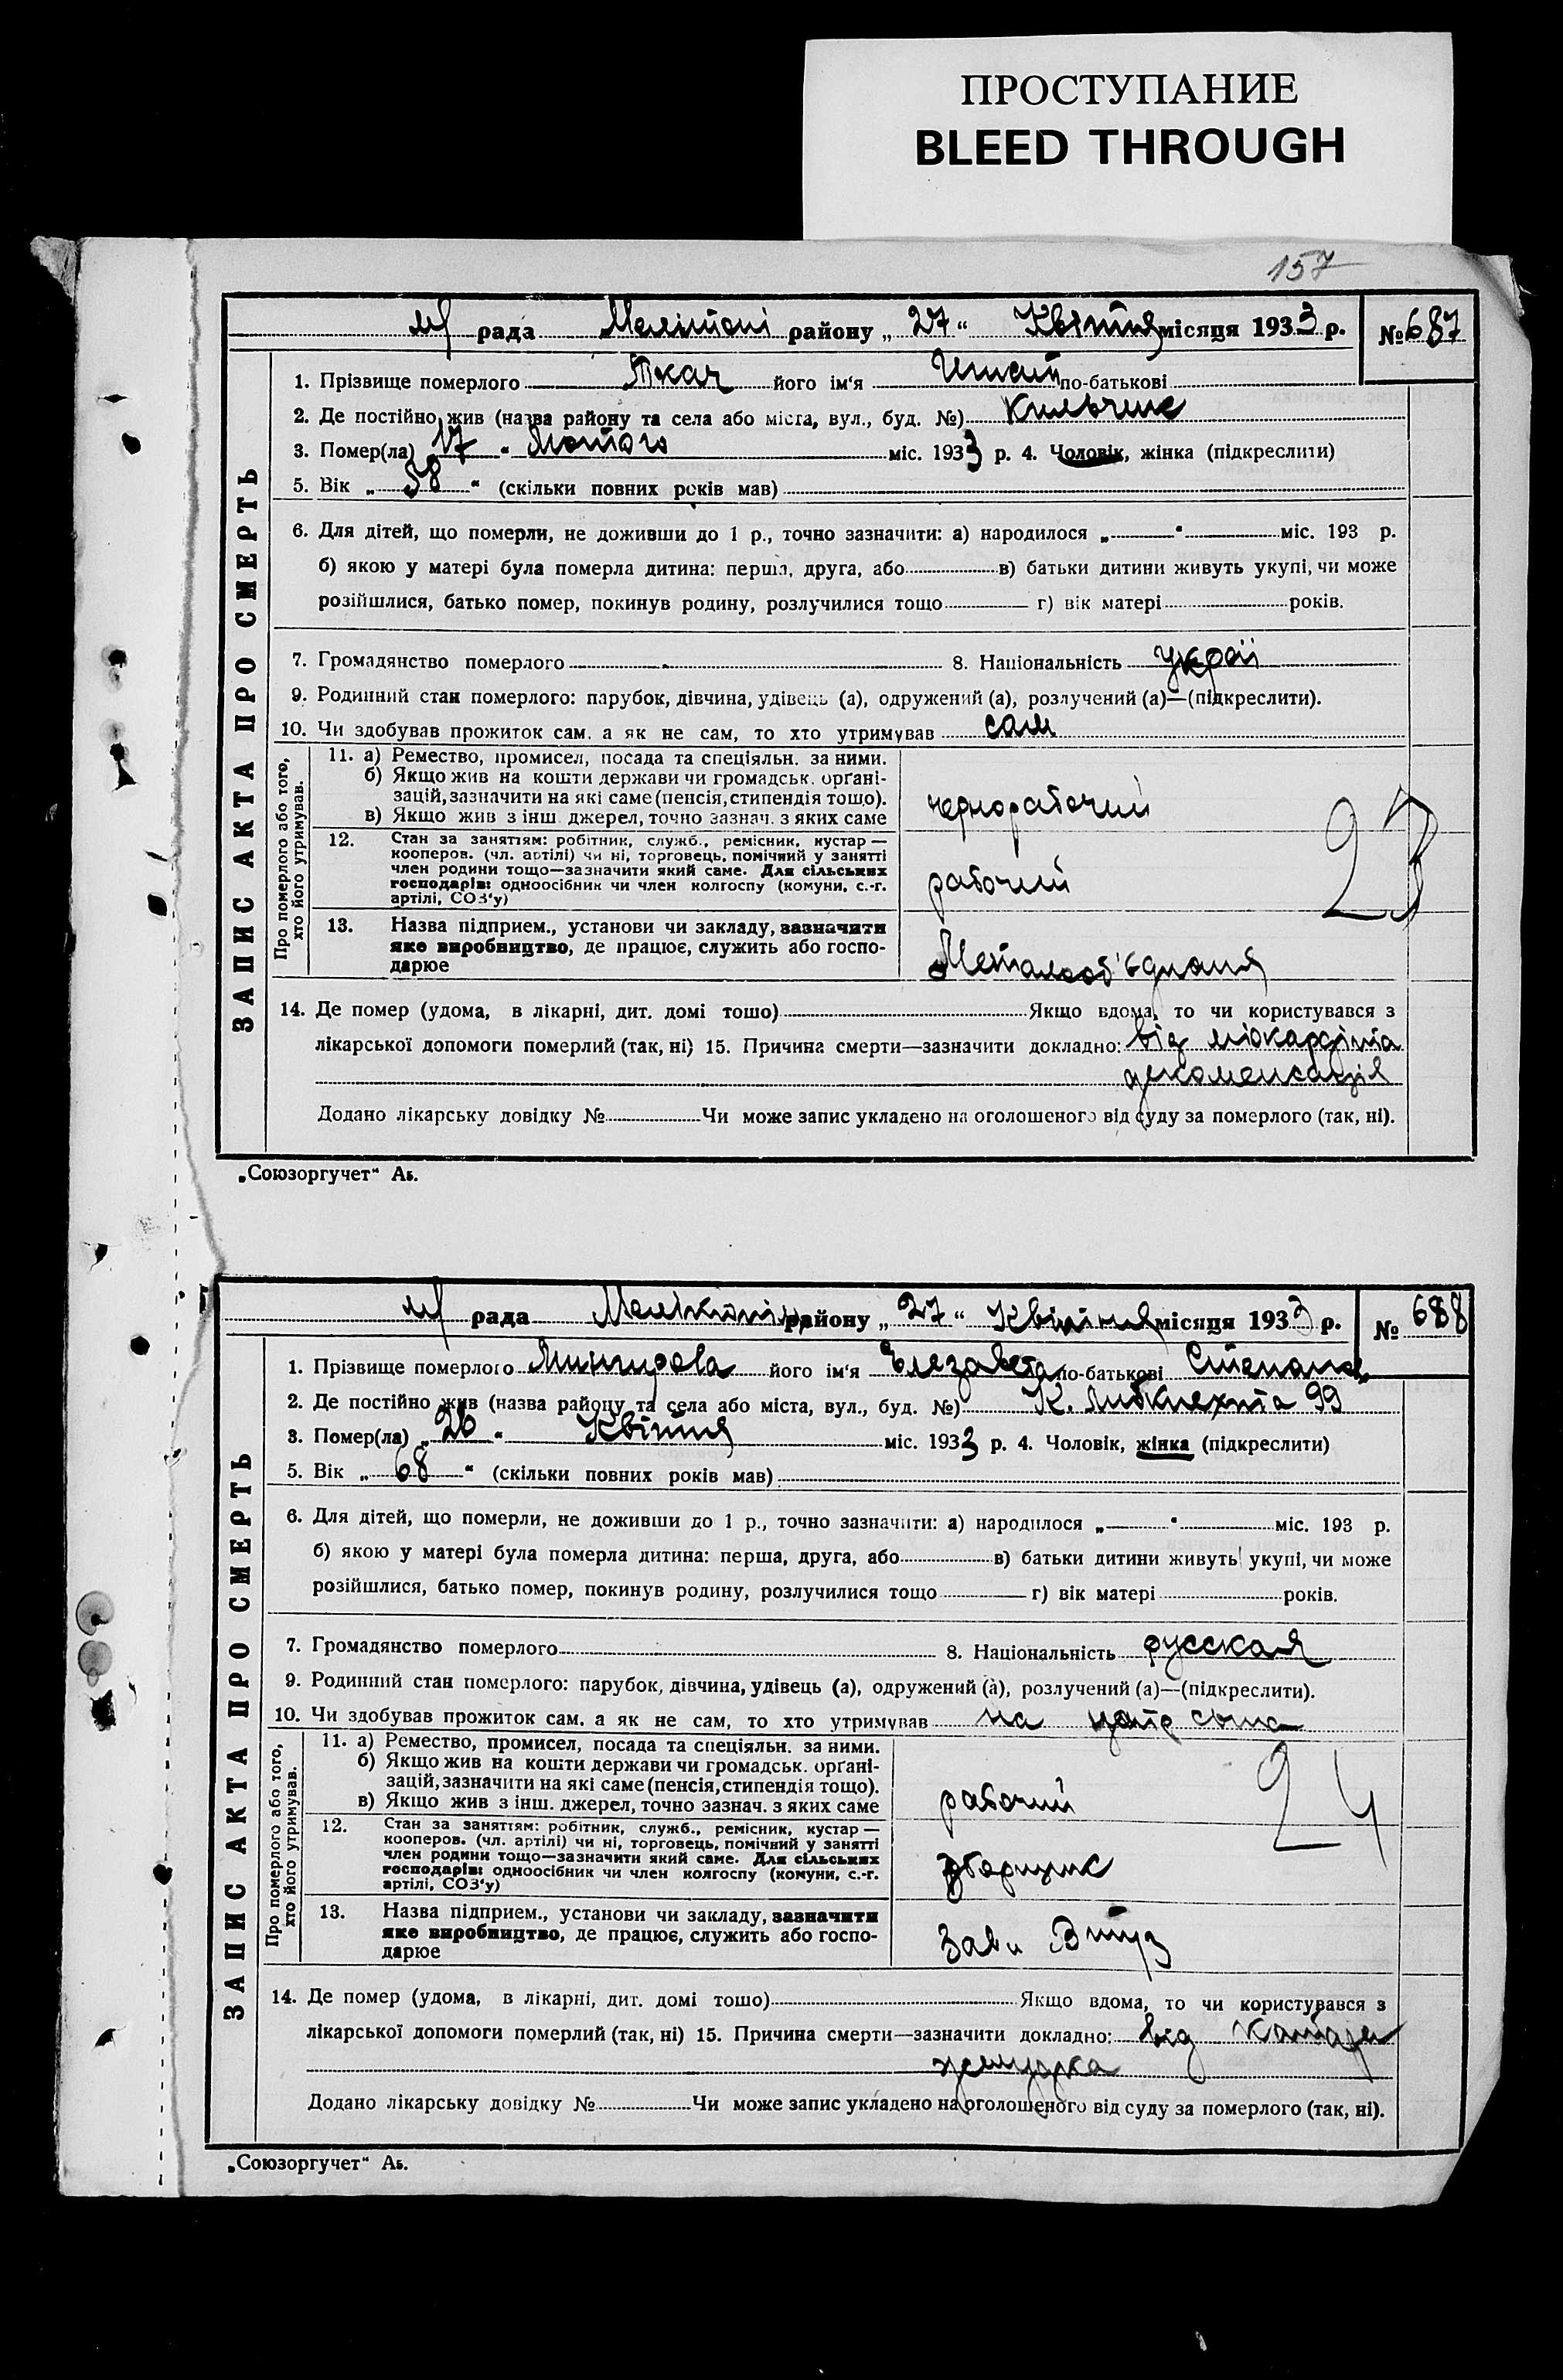 ПРОСТУПАНИЕ
BLEED THROUGH
157
рада Мелітопі району „ 27 “ Квітня місяця 1933 р. № 687
1. Прізвище померлого Ткач його ім'я по-батькові
2. Де постійно жив (назва району та села або міста, вул., буд. №)
3. Помер(ла) „ 17 “ Лютого міс. 1933 р. 4. Чоловік, жінка (підкреслити)
5. Вік „ 58 “ (скільки повних років мав)
6. Для дітей, що померли, не доживши до 1 р., точно зазначити: а) народилося „ “ міс. 193 р.
б) якою у матері була померла дитина: перша, друга, або в) батьки дитини живуть укупі, чи може
розійшлися, батько помер, покинув родину, розлучилися тощо г) вік матері років.
7. Громадянство померлого 8. Національність украї
9. Родинний стан померлого: парубок, дівчина, удівець (а), одружений (а), розлучений (а)—(підкреслити).
10. Чи здобував прожиток сам, а як не сам, то хто утримував сам
ЗАПИС АКТА ПРО СМЕРТЬ
Про померлого або того, хто його утримував.
11. а) Ремество, промисел, посада та спеціяльн. за ними.
б) Якщо жив на кошти держави чи громадськ. орґані-
зацій, зазначити на які саме (пенсія, стипендія тощо).
в) Якщо жив з інш. джерел, точно зазнач. з яких саме
чернорабочий
23
12. Стан за заняттям: робітник, служб., ремісник, кустар —
кооперов. (чл. артілі) чи ні, торговець, помічний у занятті
член родини тощо—зазначити який саме. Для сільських
господарів: одноосібник чи член колгоспу (комуни, с.-г.
артілі, СОЗ'у)
рабочий
13. Назва підприєм., установи чи закладу, зазначити
яке виробництво, де працює, служить або госпо-
дарює
Металооб'єднання
14. Де помер (удома, в лікарні, дит. домі тощо) Якщо вдома, то чи користувався з
лікарської допомоги померлий (так, ні) 15. Причина смерти—зазначити докладно: від міокардіта
декоменсація
Додано лікарську довідку № Чи може запис укладено на оголошеного від суду за померлого (так, ні).
„Союзоргучет“ А5.
рада району „ 27 “ Квітня місяця 1933 р. № 688
1. Прізвище померлого його ім'я Елезавета по-батькові Степанов
2. Де постійно жив (назва району та села або міста, вул., буд. №) К. Либкнехта 99
3. Помер(ла) „ 26 “ Квітня міс. 1933 р. 4. Чоловік, жінка (підкреслити)
5. Вік „ 68 “ (скільки повних років мав)
6. Для дітей, що померли, не доживши до 1 р., точно зазначити: а) народилося „ “ міс. 193 р.
б) якою у матері була померла дитина: перша, друга, або в) батьки дитини живуть укупі, чи може
розійшлися, батько помер, покинув родину, розлучилися тощо г) вік матері років.
7. Громадянство померлого 8. Національність русская
9. Родинний стан померлого: парубок, дівчина, удівець (а), одружений (а), розлучений (а)—(підкреслити).
10. Чи здобував прожиток сам, а як не сам, то хто утримував на сына
ЗАПИС АКТА ПРО СМЕРТЬ
Про померлого або того, хто його утримував.
11. а) Ремество, промисел, посада та спеціяльн. за ними.
б) Якщо жив на кошти держави чи громадськ. орґані-
зацій, зазначити на які саме (пенсія, стипендія тощо).
в) Якщо жив з інш. джерел, точно зазнач. з яких саме
рабочий
24
12. Стан за заняттям: робітник, служб., ремісник, кустар —
кооперов. (чл. артілі) чи ні, торговець, помічний у занятті
член родини тощо—зазначити який саме. Для сільських
господарів: одноосібник чи член колгоспу (комуни, с.-г.
артілі, СОЗ'у)
13. Назва підприєм., установи чи закладу, зазначити
яке виробництво, де працює, служить або госпо-
дарює
14. Де помер (удома, в лікарні, дит. домі тощо) Якщо вдома, то чи користувався з
лікарської допомоги померлий (так, ні) 15. Причина смерти—зазначити докладно: від Катара
желудка
Додано лікарську довідку № Чи може запис укладено на оголошеного від суду за померлого (так, ні).
„Союзоргучет“ А5.